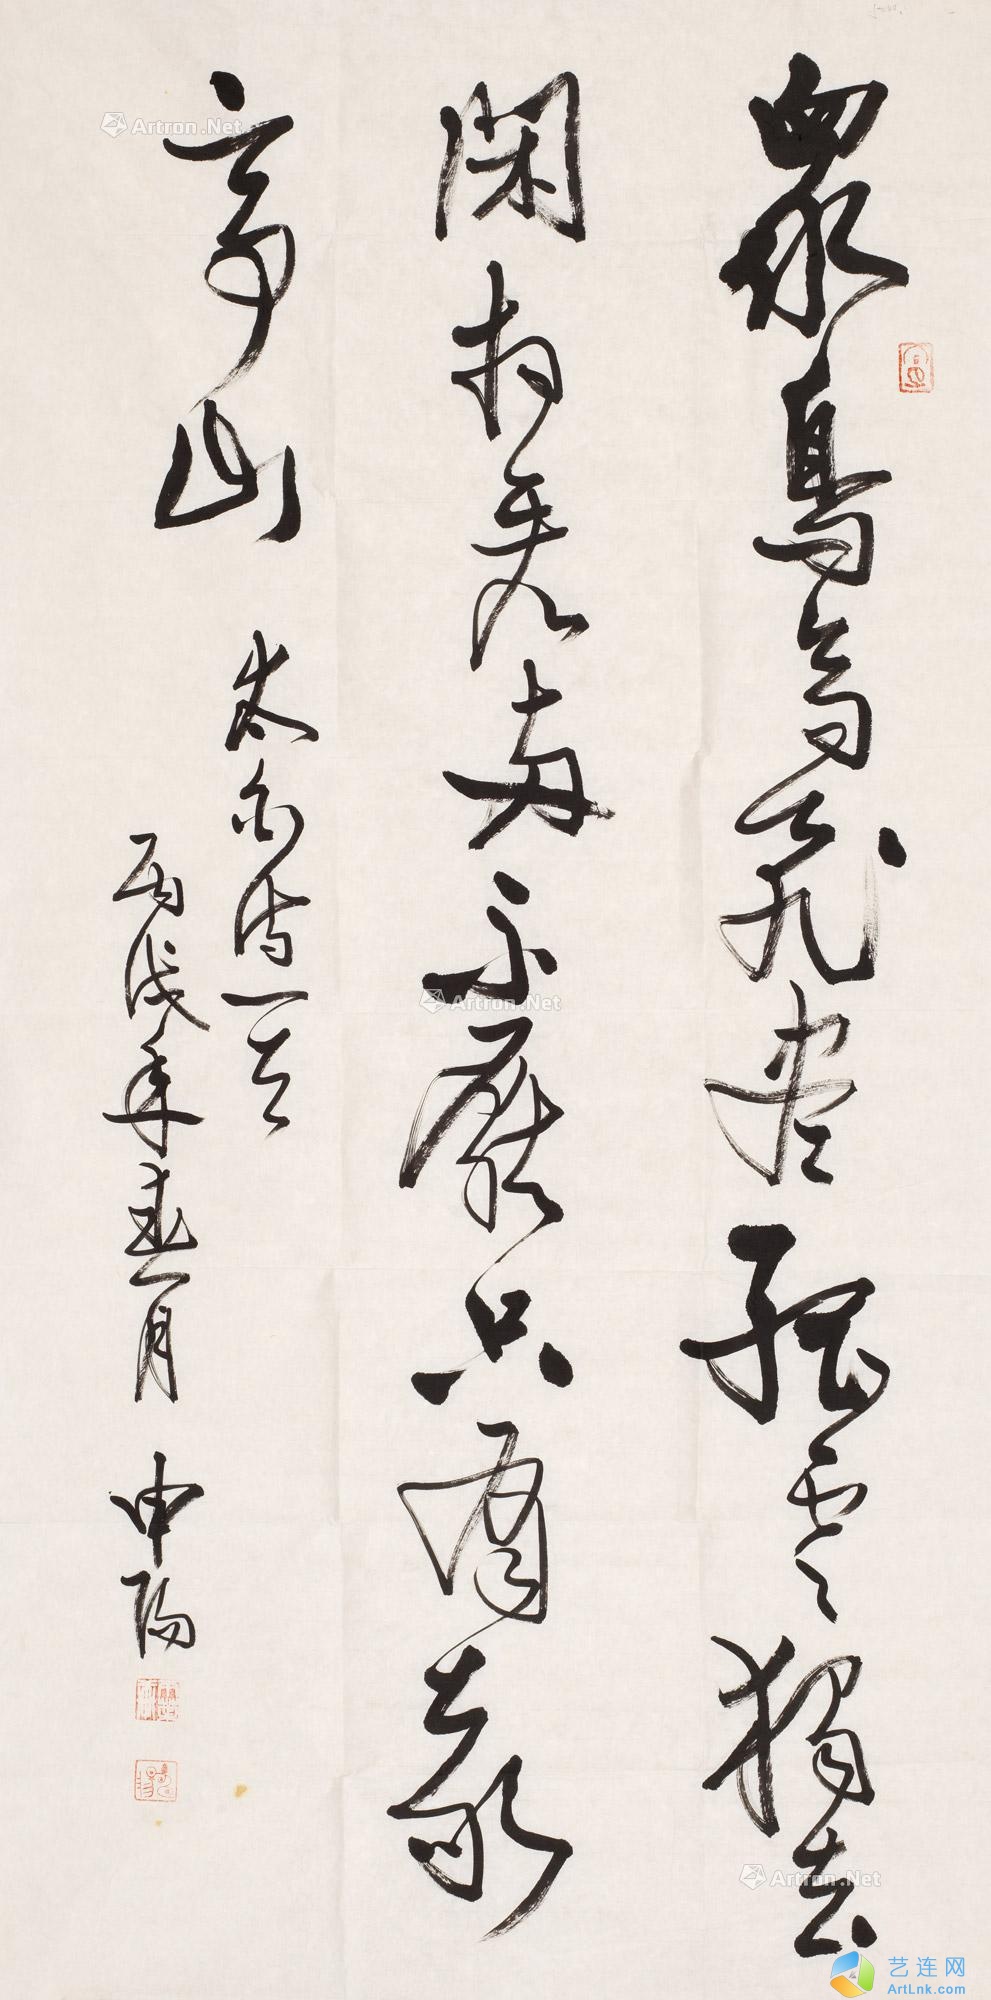 衆鳥高飛盡孤雲獨去
閑相看兩不厭只有敬
亭山
太白詩一首
丙戌年春月 申陽
Artron.Net
Artron.Net
Artron.Net
艺连网
ArtLnk.com